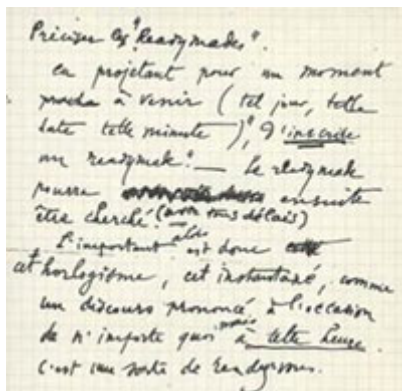 Préciser les "Readymades".
en projetant pour un moment
proche à venir (tel jour, telle
date telle minute), "d'inscrire
un readymade". — Le readymade
pourra ensuite
être cherché. (avec tous délais)
L'important alors est donc
cet horlogisme, cet instantané, comme
un discours prononcé à l'occasion
de n'importe quoi mais à telle heure.
C'est une sorte de rendez-vous.